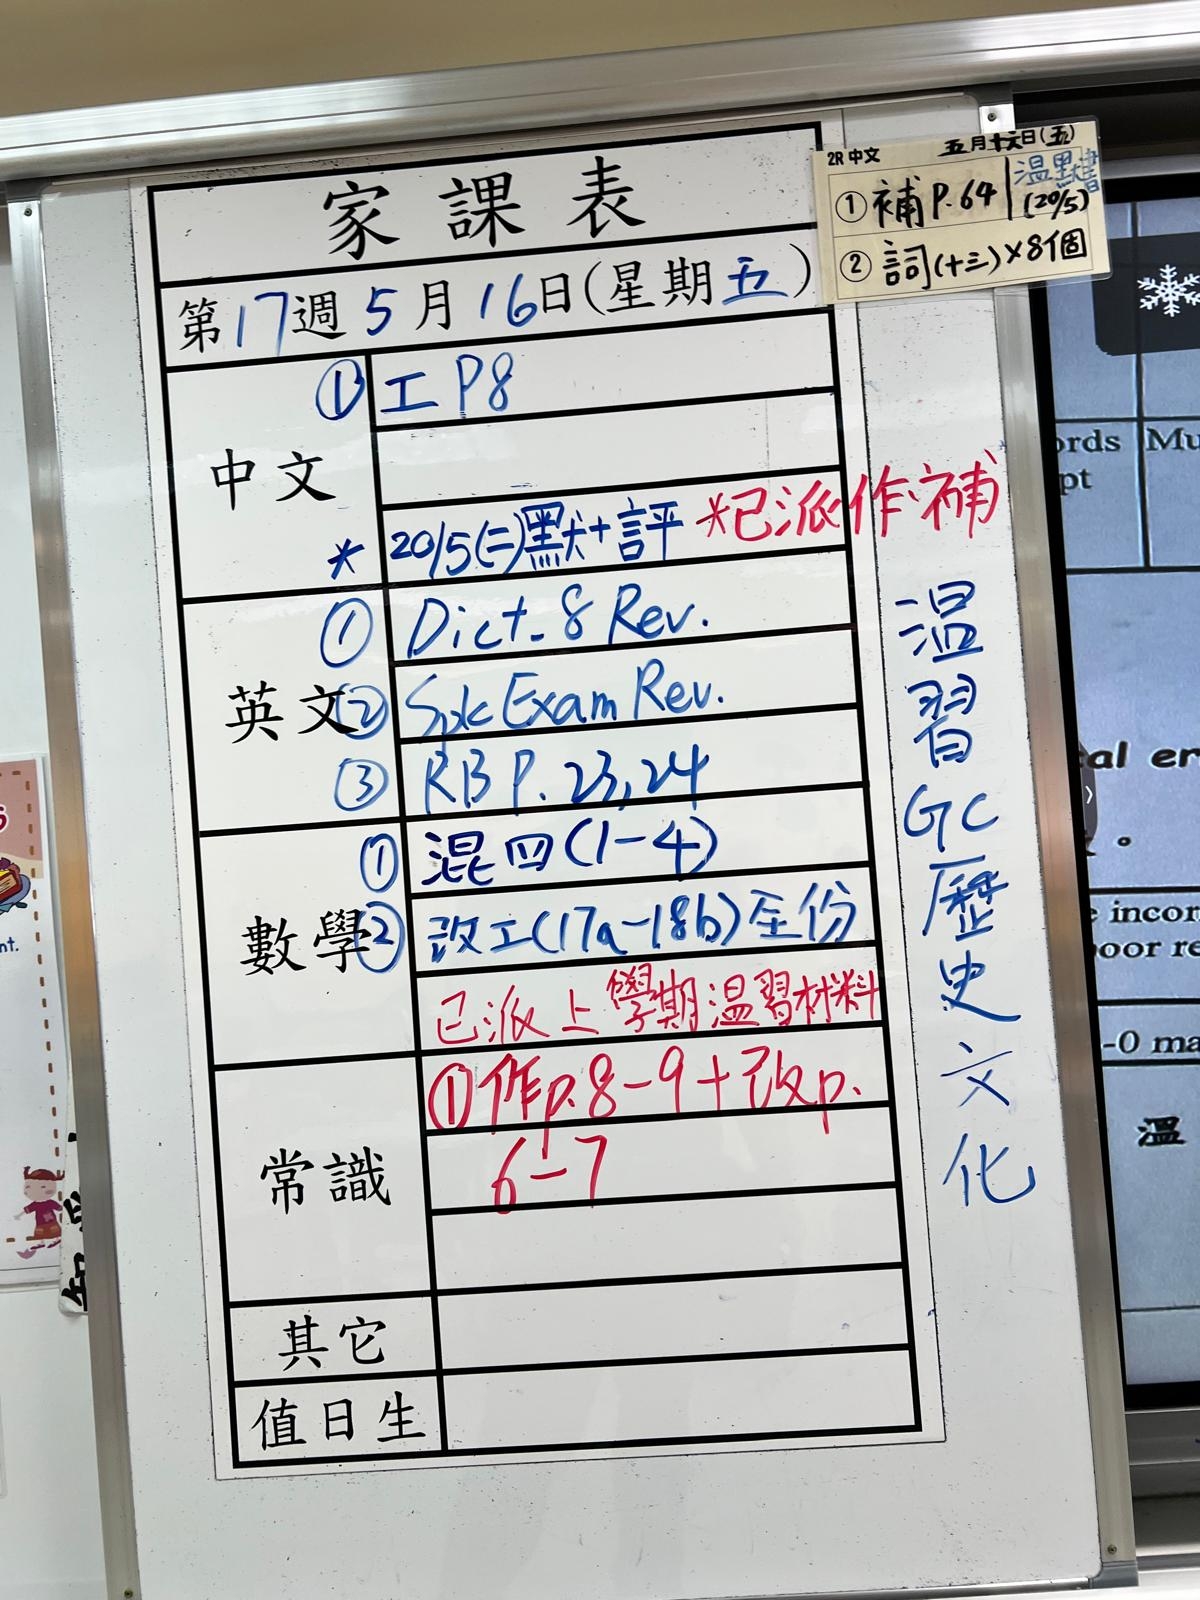 家課表
第17週5月16日(星期五)
2R 中文 五月十六日(五)
① 補 P.64 温默書 (20/5)
② 詞(十三)×8個
中文
① 工 P8
* 20/5(二)默+評 *已派作、補
英文
① Dict. 8 Rev.
② Spk Exam Rev.
③ RB P. 23, 24
數學
① 混四(1-4)
② 改工(17a-18b)全份
已派上學期温習材料
常識
① 作p.8-9+改p.
6-7
其它
值日生
温習GC歷史文化
ords Mu
pt
al er
e incor
oor re
-0 ma
溫
nt.